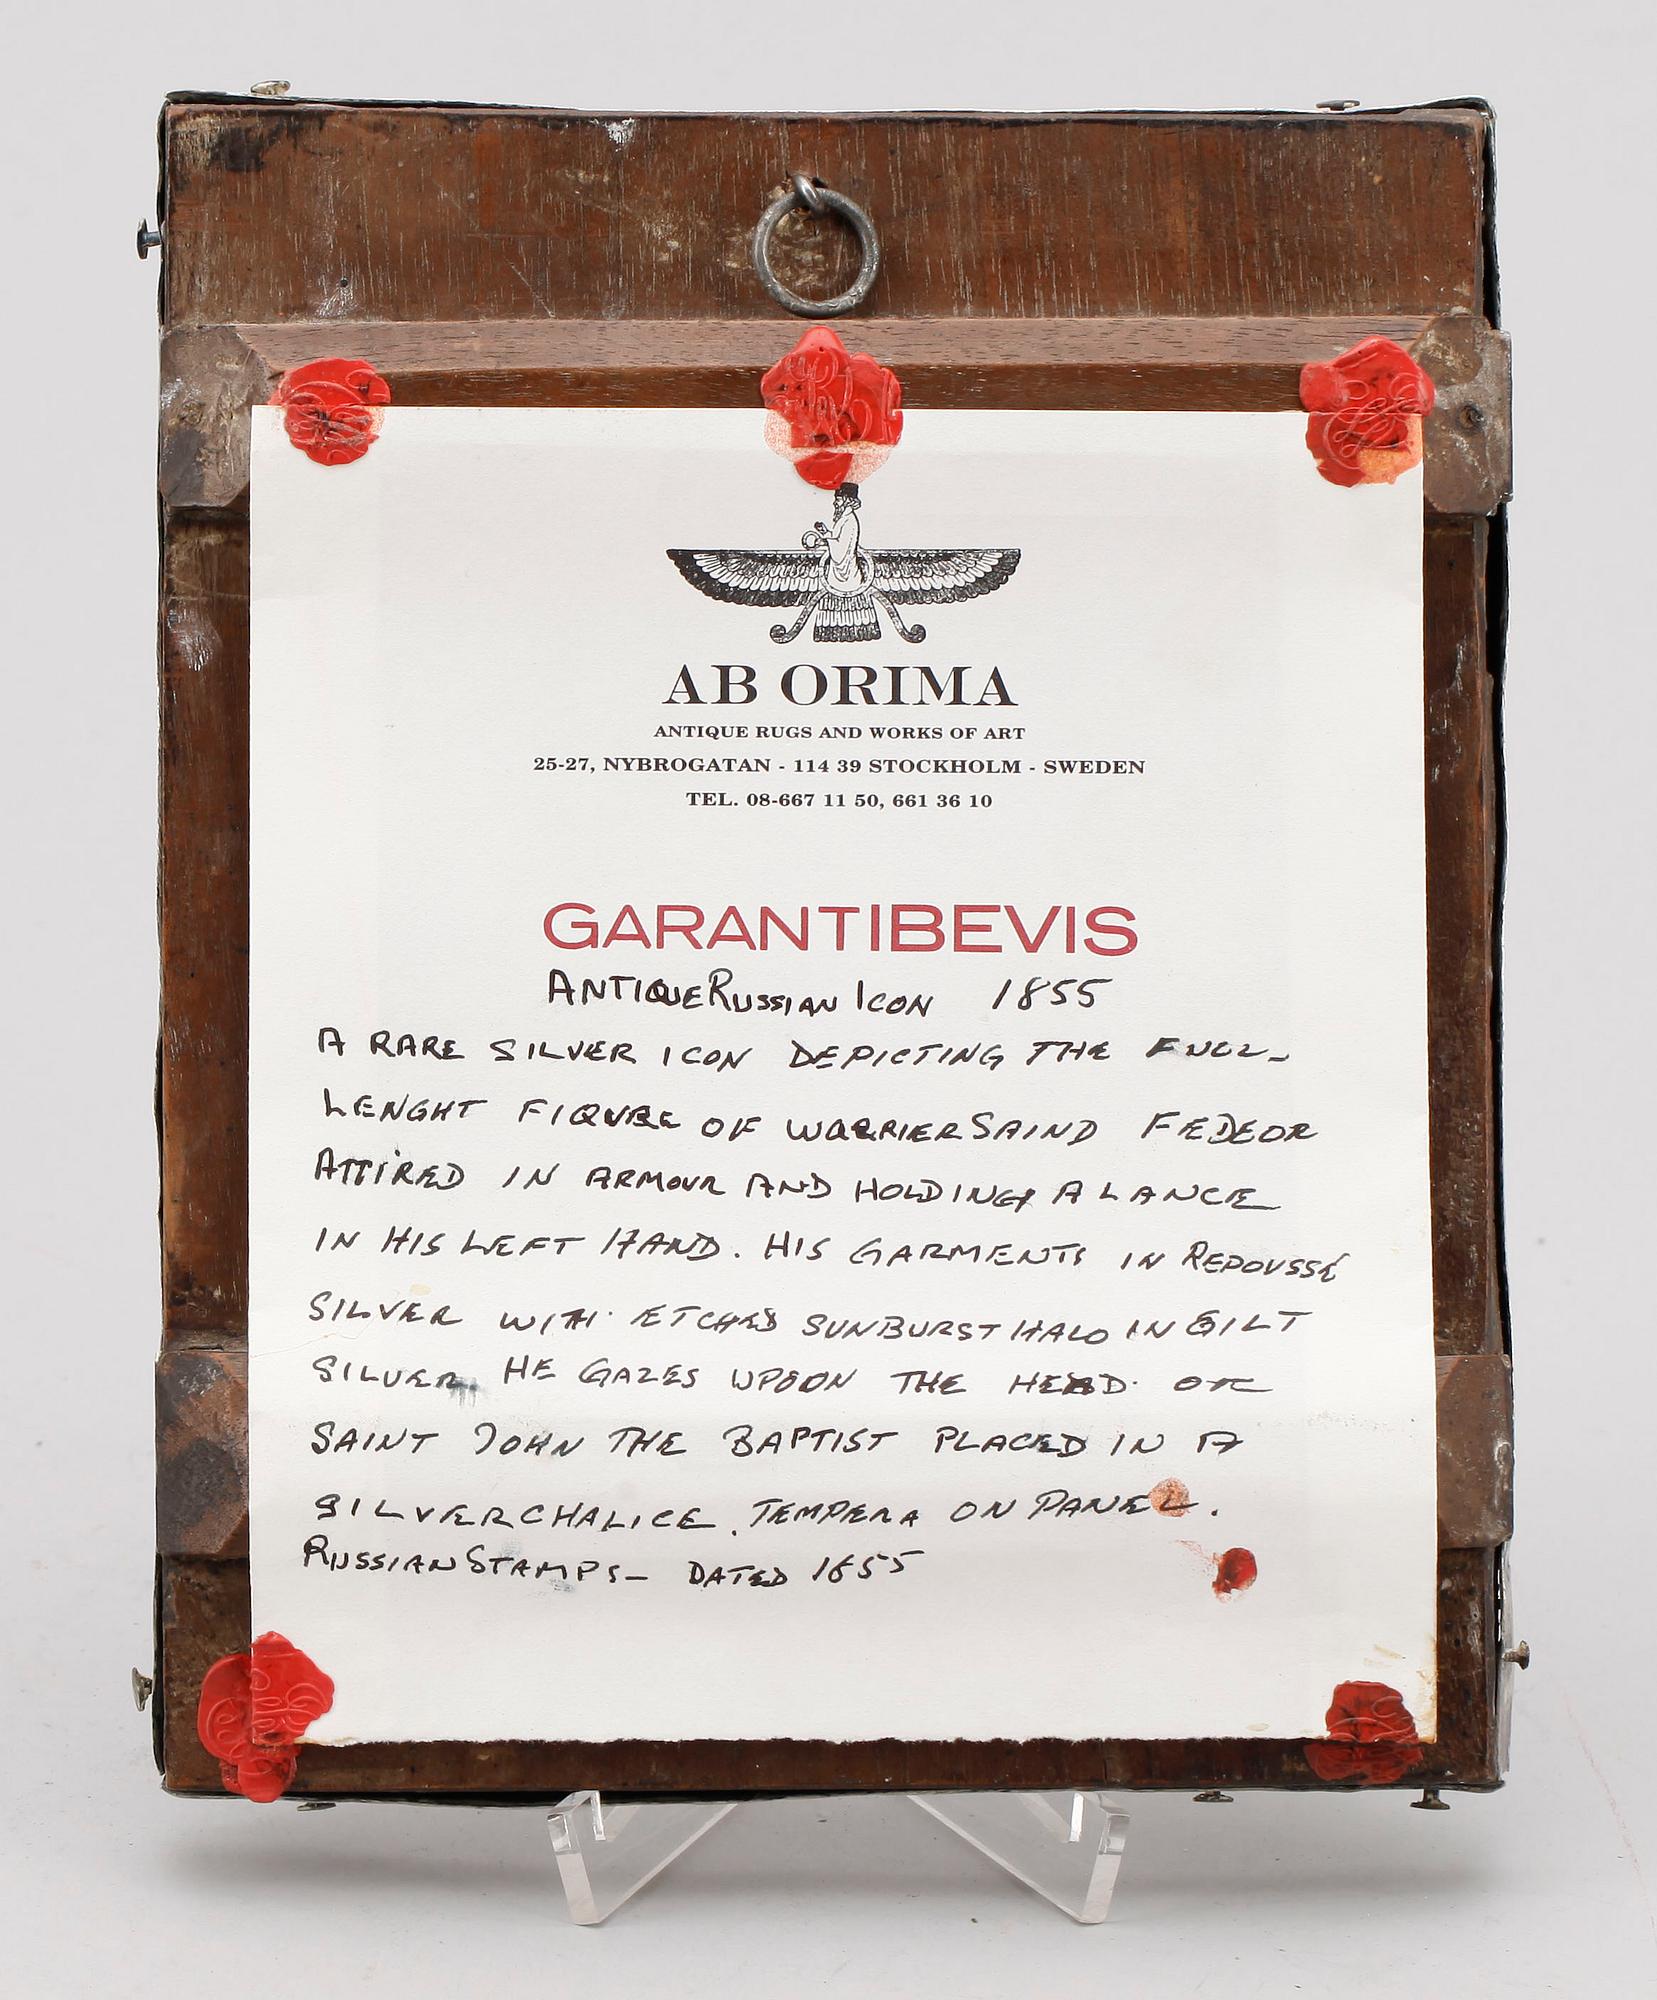 AB ORIMA
ANTIQUE RUGS AND WORKS OF ART
25-27, NYBROGATAN - 114 39 STOCKHOLM - SWEDEN
TEL. 08-667 11 50, 661 36 10
GARANTIBEVIS
ANTIQUE RUSSIAN ICON 1855
A RARE SILVER ICON DEPICTING THE FULL-
LENGHT FIQURE OF WARRIER SAIND FEDEOR
ATTIRED IN ARMOUR AND HOLDING A LANCE
IN HIS LEFT HAND. HIS GARMENTS IN REPOUSSÉ
SILVER WITH ETCHED SUNBURST HALO IN GILT
SILVER. HE GAZES UPOON THE HEAD OF
SAINT JOHN THE BAPTIST PLACED IN A
SILVER CHALICE. TEMPERA ON PANEL.
RUSSIAN STAMPS- DATED 1855